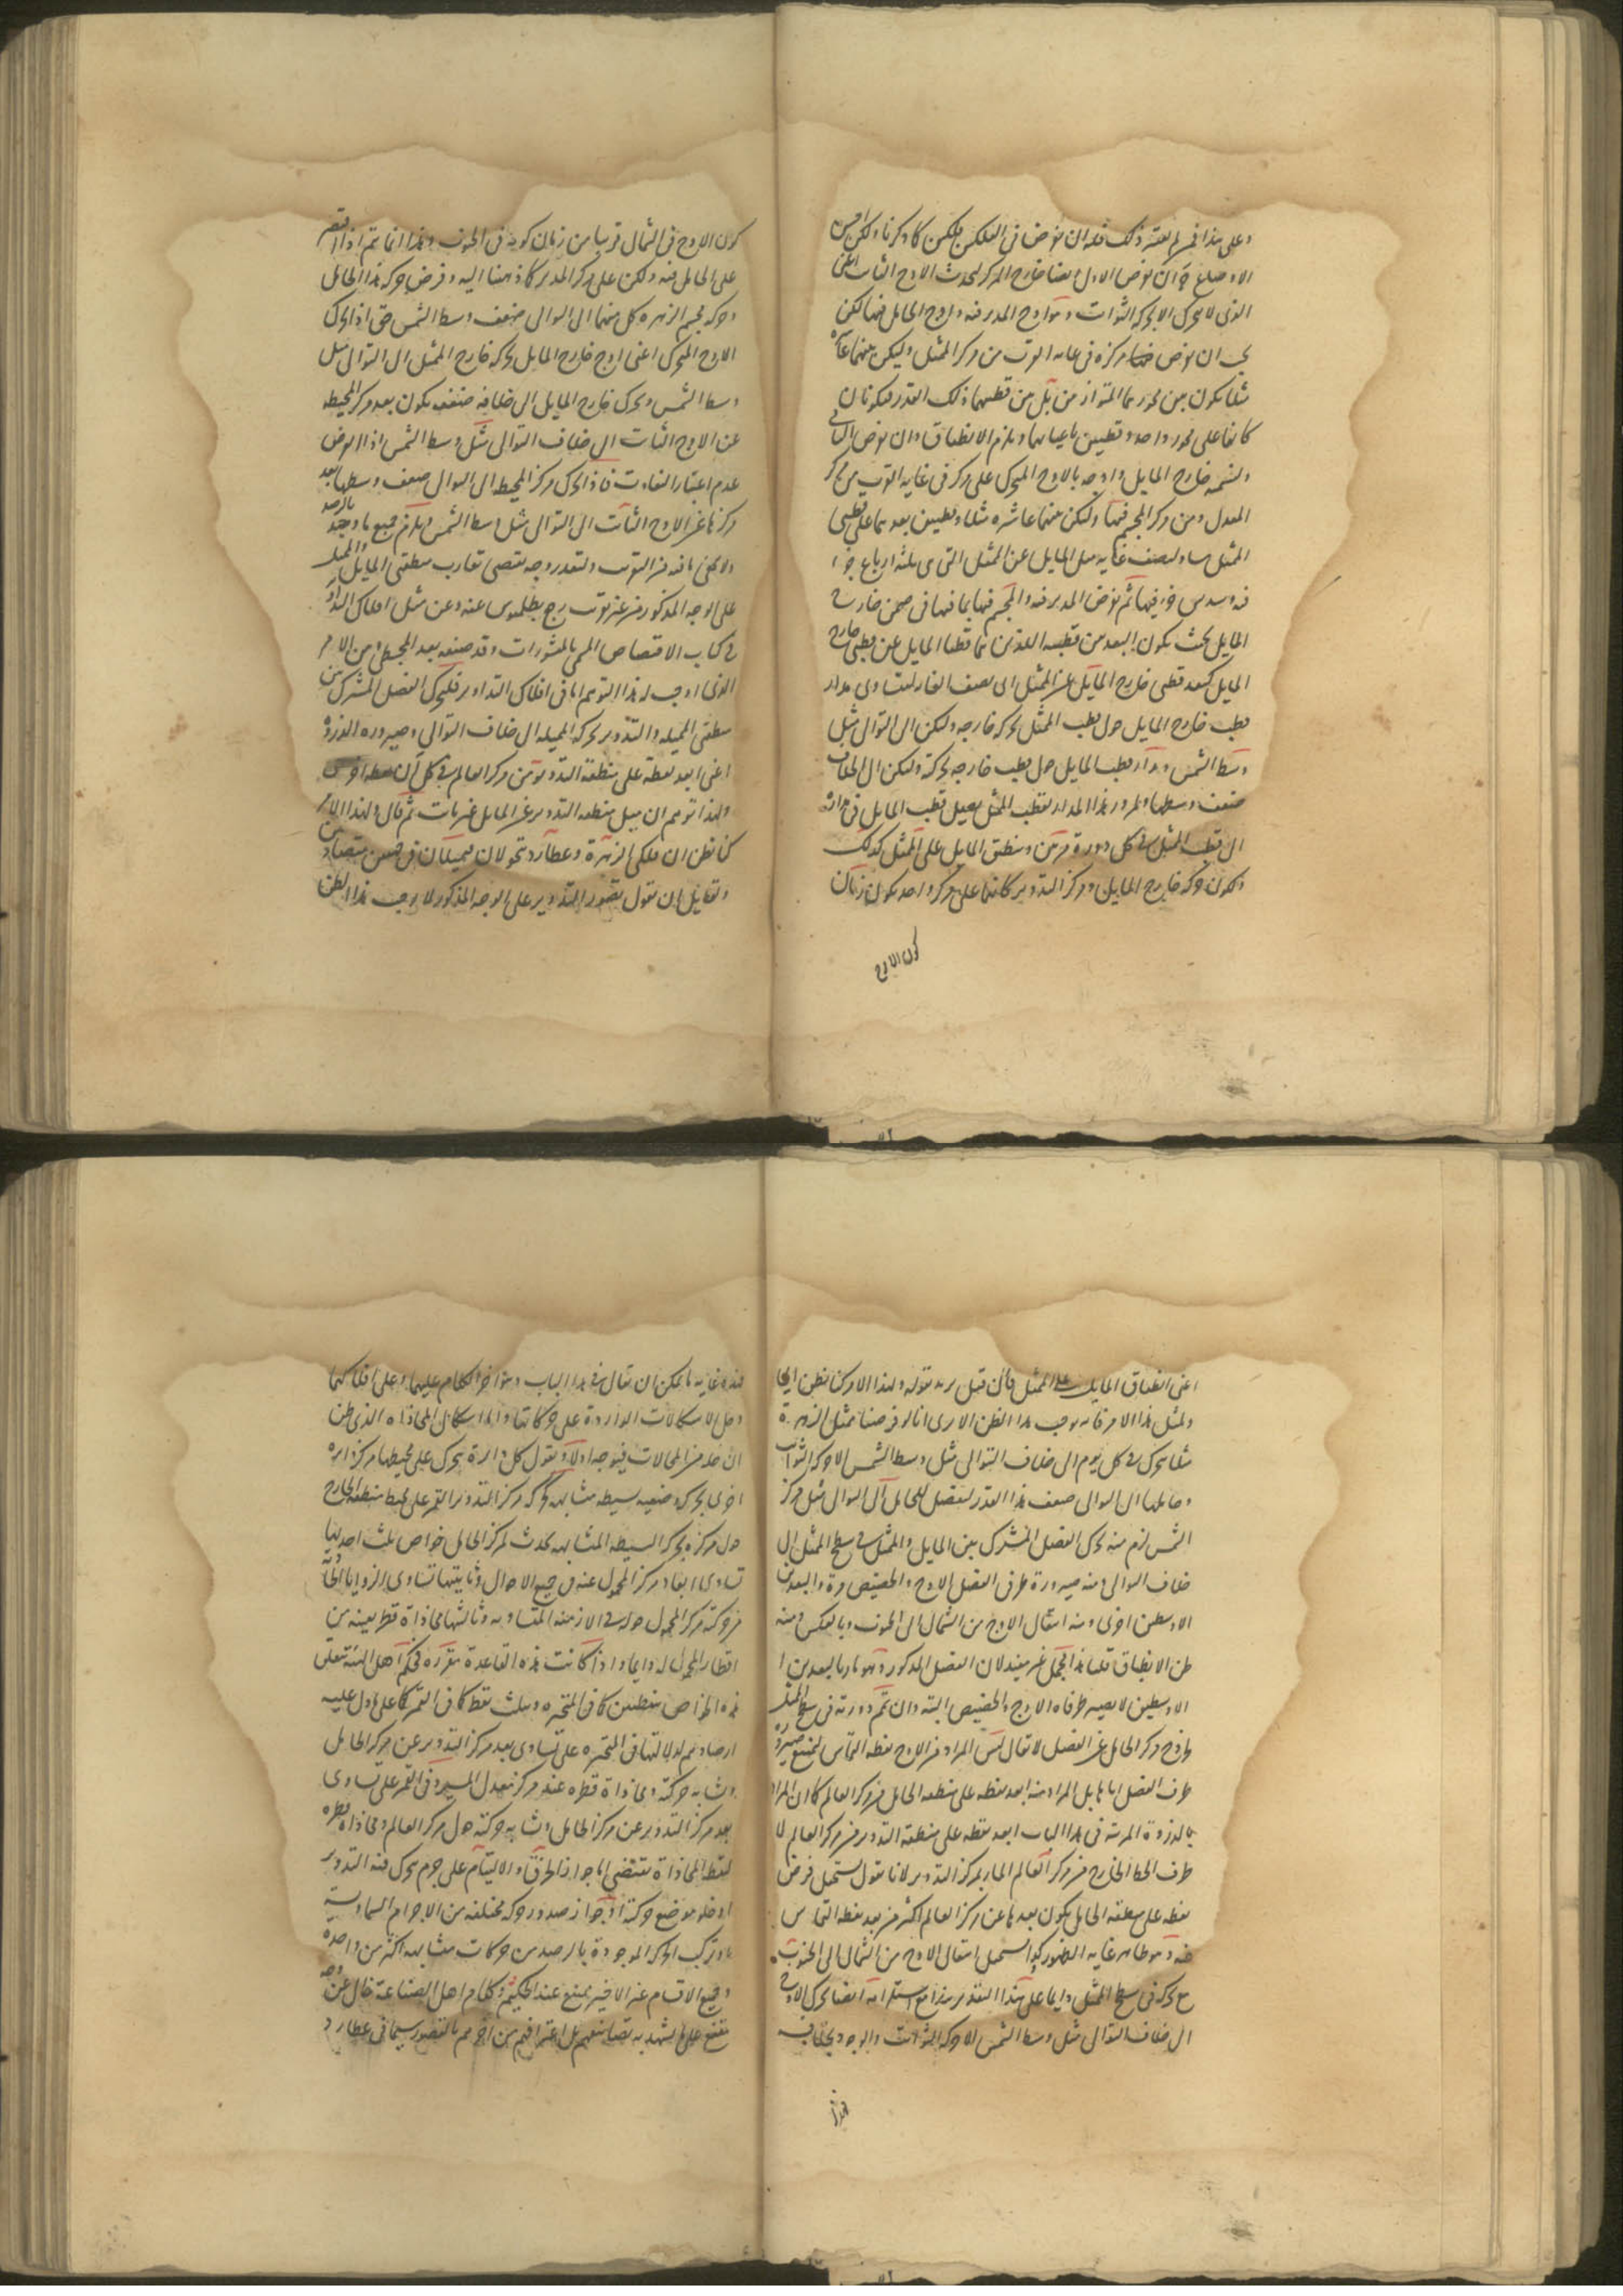 وعلى هذا فمن لم يعتبر ذلك فله ان يفرض في الفلكين فلكين كما ذكرنا ولكن
الاوضاع ان يفرض الاول ايضا خارج المركز ليحدث الاوج الثابت اعنى
الذى لا يتحرك الا بحركة الثوابت وهو اوج المدير فيه واوج الحامل فيها لكن
يجب ان يفرض مركزه في غاية القرب من مركز الممثل وليكن بينهما
مثلا يكون بين محوريهما المتوازيين بل بين قطبيهما ذلك القدر فيكونان
كانهما على محور واحد وقطبين باعيانهما ويلزم الانطباق وان يفرض الثانى
ونسميه خارج المايل واوجه بالاوج المتحرك على مركز في غاية القرب من مركز
المعدل ومن مركز المجسم فيها وليكن بينهما عاشرة مثلا وقطبين بعدهما عن قطبى
الممثل مساو لنصف غاية ميل المايل عن الممثل التى هى ثلثة ارباع جزء
فيه وسدس جزء فيها ثم يفرض المدير فيه والمجسم فيها بما فيهما في ضمن خارج
المايل بحيث يكون البعد من قطبيه اللذين هما قطبا المايل عن قطبى خارج
المايل كبعد قطبى خارج المايل عن الممثل اى نصف الغاية ليتساوى مدار
قطب خارج المايل حول قطب الممثل بحركة خارجه وليكن الى التوالى مثل
وسط الشمس ومدار قطب المايل حول قطب خارجه بحركته وليكن الى الخلاف
ضعف وسطها ولمرور هذا المدار بقطب الممثل يصل قطب المايل في حركته
الى قطب الممثل في كل دورة مرتين وينطبق المايل على الممثل كذلك
ولكون حركة خارج المايل ومركز التدوير كانهما على مركز واحد يكون زمان
كون الاوج
كون الاوج في الشمال قريبا من زمان كونه في الجنوب وهذا انما يتم اذا اقتصر
على الحامل فيه ولكن على مركز المدير كما ذهبنا اليه وفرض حركة هذا الحامل
وحركة مجسم الزهرة كل منهما الى التوالى ضعف وسط الشمس حتى اذا تحرك
الاوج المتحرك اعنى اوج خارج المايل بحركة خارج الممثل الى التوالى مثل
وسط الشمس وتحرك خارج المايل الى خلافه ضعفه يكون بعد مركز المحيط
عن الاوج الثابت الى خلاف التوالى مثل وسط الشمس اذ الفرض
عدم اعتبار التفاوت فاذا تحرك مركز المحيط الى التوالى ضعف وسطها بعد
مركزها عن الاوج الثابت الى التوالى مثل وسط الشمس ويلزم جميع ما وجد بالرصد
ولا يخفى ما فيه من التقريب ولتعذر وجه يقتضى تقارب منطقتى المايل والممثل
على الوجه المذكور من غير تقريب رجع بطلميوس عنه وعن مثل افلاك التداوير
في كتاب الاقتصاص المسمى بالمنشورات وقد صنفه بعد المجسطى ومن الامر
الذى اوجب له هذا التوهم اما في افلاك التداوير فلتحرك الفصل المشترك بين
منطقتى المميلة والتدوير بحركة المميلة الى خلاف التوالى وصيرورة الذروة
اعنى ابعد نقطة على منطقة التدوير من مركز العالم في كل آن نقطة اخرى
ولهذا توهم ان ميل منطقة التدوير عن المايل غير ثابت ثم قال ولهذا الامر
كنا نظن ان فلكى الزهرة وعطارد يتحولان فيميلان في جهتين متضادتين
ولقائل ان يقول تصور التدوير على الوجه المذكور لا يوجب هذا الظن
اعنى انطباق المايل على الممثل فان قيل يريد بقوله ولهذا الامر كنا نظن
ولمثل هذا الامر فانه يوجب هذا الظن الا يرى انا لو فرضنا ممثل الزهرة
مثلا يتحرك في كل يوم الى خلاف التوالى مثل وسط الشمس الا حركة الثوابت
وحاملها الى التوالى ضعف هذا القدر ليفضل للحامل الى التوالى مثل مركز
الشمس لزم منه تحرك الفصل المشترك بين المايل والممثل في سطح الممثل الى
خلاف التوالى ومنه صيرورة طرفى الفصل الاوج والحضيض مرة والبعدين
الاوسطين اخرى ومنه انتقال الاوج من الشمال الى الجنوب وبالعكس ومنه
ظن الانطباق قلنا هذا التحمل غير مفيد لان الفصل المذكور وهو مارا بالبعدين
الاوسطين لا يصير طرفاه الاوج والحضيض البتة وان تمم دورته في سطح الممثل
لخروج مركز الحامل عن الفصل لا يقال ليس المراد من الاوج نقطة التماس ليمتنع صيرورة
طرف الفصل اياها بل المراد منه ابعد نقطة على منطقة الحامل من مركز العالم كما ان المراد
بالذروة المرئية في هذا الباب ابعد نقطة على منطقة التدوير من مركز العالم لا
طرف الخط الخارج من مركز العالم المار بمركز التدوير لانا نقول يستحيل فرض
نقطة على منطقة الحامل يكون بعدها عن مركز العالم اكثر من بعد نقطة التماس
عنه وهو ظاهر غاية الظهور كما يستحيل انتقال الاوج من الشمال الى الجنوب
مع حركته في سطح الممثل دايما على هذا التقدير هذا مع استلزامه ايضا تحرك الاوج
الى خلاف التوالى مثل وسط الشمس الا حركة الثوابت والوجود بخلافه
فهذه غاية ما يمكن ان يقال في هذا الباب وهو آخر الكلام عليهما وعلى افلاكهما
وحل الاشكالات الواردة على حركاتها واما اشكال المحاذاة الذى ظن
ان حله من المحالات فيتوجه اولا ونقول كل دايرة يتحرك على محيطها مركز دايرة
اخرى بحركة وضعية بسيطة متشابهة كحركة مركز التدوير القمر على محيط منطقة الخارج
حول مركزه بحركته البسيطة المتشابهة يحدث لمركز الحامل خواص ثلث احديها
تساوى ابعاد مركز المحمول عنه في جميع الاحوال وثانيتها تساوى الزوايا الحادثة
من حركة مركز المحمول حوله في الازمنة المتساوية وثالثتها محاذاة قطر بعينه من
اقطار المحمول له دايما واذا كانت هذه القاعدة متقررة فحكم اهل الهيئة بتعلق
هذه الخواص بنقطتين كما في المتحيرة وبثلث نقط كما في القمر كما على ما دل عليه
ارصادهم لدلالتها في المتحيرة على تساوى بعد مركز التدوير عن مركز الحامل
وتشابه حركته ومحاذاة قطره عند مركز معدل المسير وفي القمر على تساوى
بعد مركز التدوير عن مركز الحامل وتشابه حركته حول مركز العالم ومحاذاة قطره
لنقطة المحاذاة يقتضى اما جواز الخرق والالتيام على جرم يتحرك فيه التدوير
او خلو موضع حركته او جواز صدور حركة مختلفة من الاجرام السماوية
او تركب الحركة الموجودة بالرصد من حركات متشابهة اكثر من واحدة
وجميع الاقسام غير الاخير يمتنع عند الحكيم وكلام اهل الصناعة خال عن وجه
يقنع على ما يشهد به تصانيفهم بل اعترافهم من آخرهم بالقصور سيما في عطارد